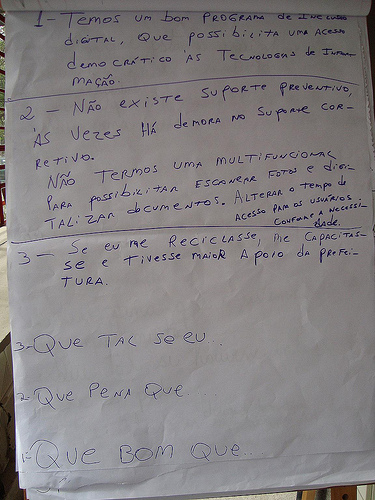 1- Temos um bom PROGRAMA de INCLUSÃO
digital, que possibilita uma acesso
democrático às Tecnologias de Infor-
mação.
2 - Não existe suporte preventivo,
às vezes há demora no suporte cor-
retivo.
Não termos uma multifuncional
para possibilitar escanear fotos e digi-
talizar documentos. Alterar o tempo de
acesso para os usuários
conforme a necessi-
dade.
3 - Se eu me reciclasse, me capacitas-
se e tivesse maior apoio da prefei-
tura.
3-Que tal se eu...
2-Que pena que...
1-Que bom que...